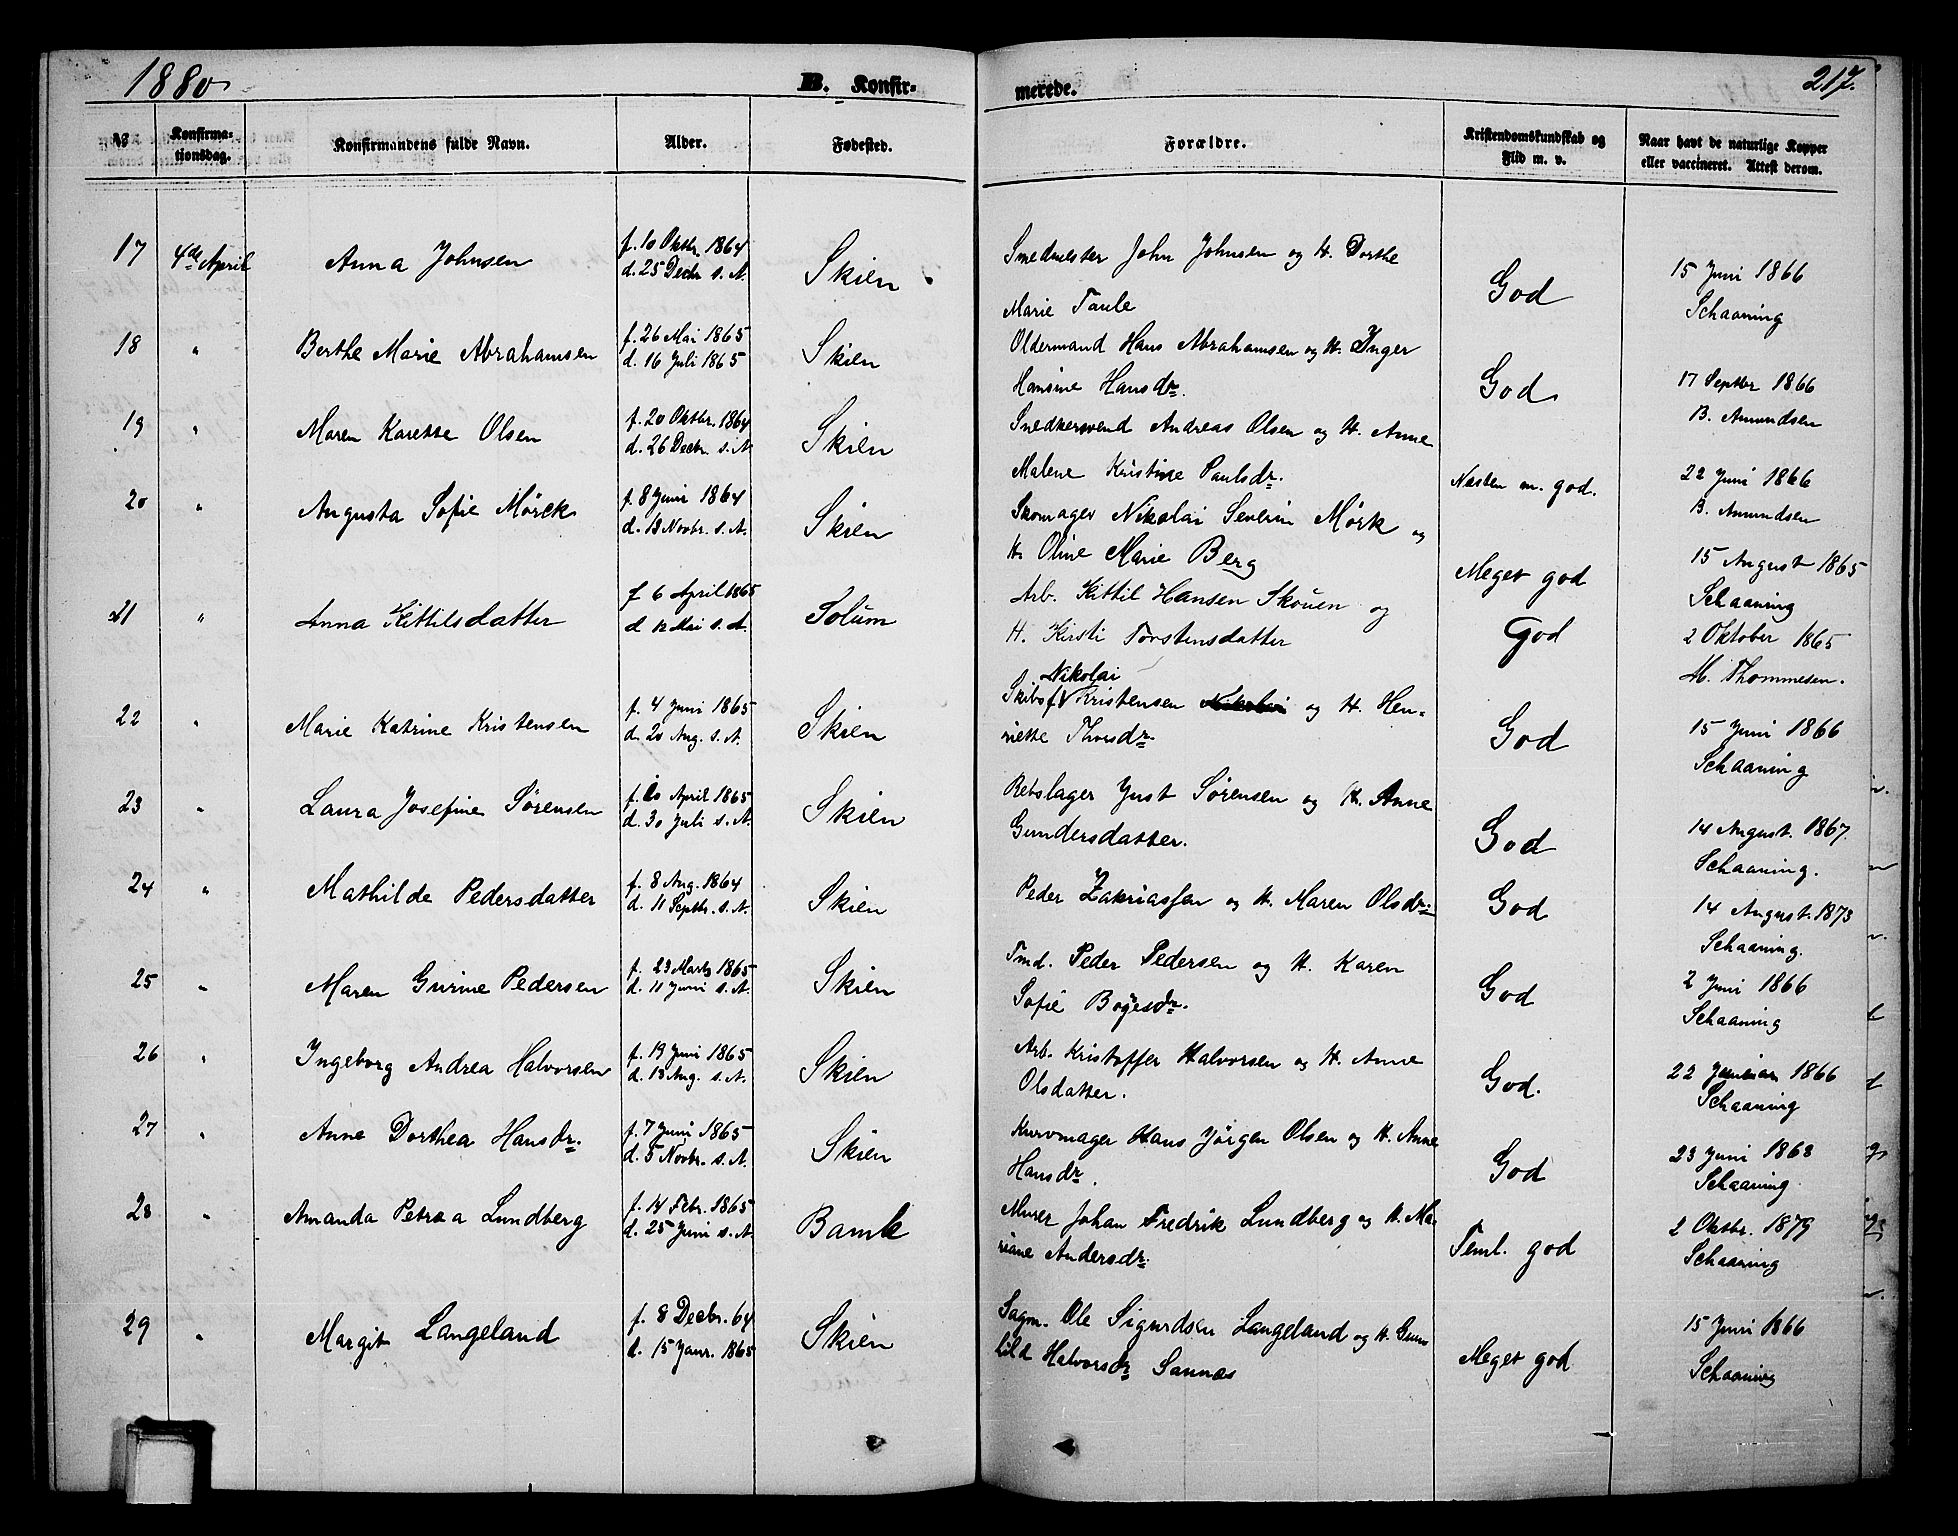 1880
B. Konfir-
merede.
217.
№
Konfirma-
tionsdag.
Konfirmandens fulde Navn.
Alder.
Fødested.
Forældre.
Kristendomskundskab og
Flid m. v.
Naar havt de naturlige Kopper
eller vaccineret. Attest derom.
17 4de April Anna Johnsen
f. 10 Oktbr. 1864
d. 25 Decbr s. A.
Skien
Smedmester John Johnsen og H. Dorthe
Marie Taule
God
15 Juni 1866
Schaaning
18 " Berthe Marie Abrahamsen
f. 26 Mai 1865
d. 16 Juli 1865
Skien
Oldermand Hans Abrahamsen og H. Inger
Hansine Hansdr.
God
17 Septbr 1866
B. Amundsen
19 " Maren Karette Olsen
f. 20 Oktbr. 1864
d. 26 Decbr. s. A.
Skien
Snedkersvend Andreas Olsen og H. Anne
Malene Kristine Paulsdr.
Næsten m. god.
22 Juni 1866
B. Amundsen
20 " Augusta Sofie Mörck
f. 8 Juni 1864
d. 13 Novbr. s. A.
Skien
Skomager Nikolai Severin Mørk og
H. Oline Marie Berg
Meget god
15 August 1865
Schaaning
21 " Anna Kittilsdatter
f 6 April 1865
d 12 Mai s. A.
Solum
Arb. Kittil Hansen Skouen og
H. Kirsti Torstensdatter
God
2 Oktober 1865
M. Thommesen.
22 " Marie Katrine Kristensen
f. 4 Juni 1865
d. 20 Aug. s. A.
Skien
Nikolai
Skibsf. Kristensen Nikolai og H. Hen-
riette Thorsdr.
God
15 Juni 1866
Schaaning
23 " Laura Josefine Sørensen
f. 10 April 1865
d. 30 Juli s. A.
Skien
Rebslager Just Sørensen og H. Anne
Gundersdatter.
God
14 August. 1867.
Schaaning.
24 " Mathilde Pedersdatter
f. 8 Aug. 1864
d. 11 Septbr. s. A.
Skien
Peder Zakriassen og H. Maren Olsdr.
God
14 August. 1873
Schaaning.
25 " Maren Gurine Pedersen
f. 23 Marts 1865
d. 11 Juni s. A.
Skien
Tmd. Peder Pedersen og H. Karen
Sofie Boyesdr.
God
2 Juni 1866
Schaaning
26 " Ingeborg Andrea Halvorsen
f. 19 Juni 1865
d. 13 Aug. s. A.
Skien
Arb. Kristoffer Halvorsen og H. Anne
Olsdatter.
God.
22 Januar 1866
Schaaning
27 " Anne Dorthea Hansdr.
f. 7 Juni 1865
d. 5 Novbr. s. A.
Skien
Kurvmager Hans Jörgen Olsen og H. Anne
Hansdr.
God
23 Juni 1868
Schaaning
28 " Amanda Petrea Lundberg
f. 14 Febr. 1865
d. 25 Juni s. A.
Bamle
Murer Johan Fredrik Lundberg og H. Ma-
riane Andersdr.
Teml. god
2 Oktbr. 1879
Schaaning
29 " Margit Langeland
f. 8 Decbr. 64
d. 15 Janr. 1865
Skien
Sagm. Ole Sigurdsen Langeland og H. Gun-
hild Halvorsdr Sannes
Meget god
15 Juni 1866
Schaaning